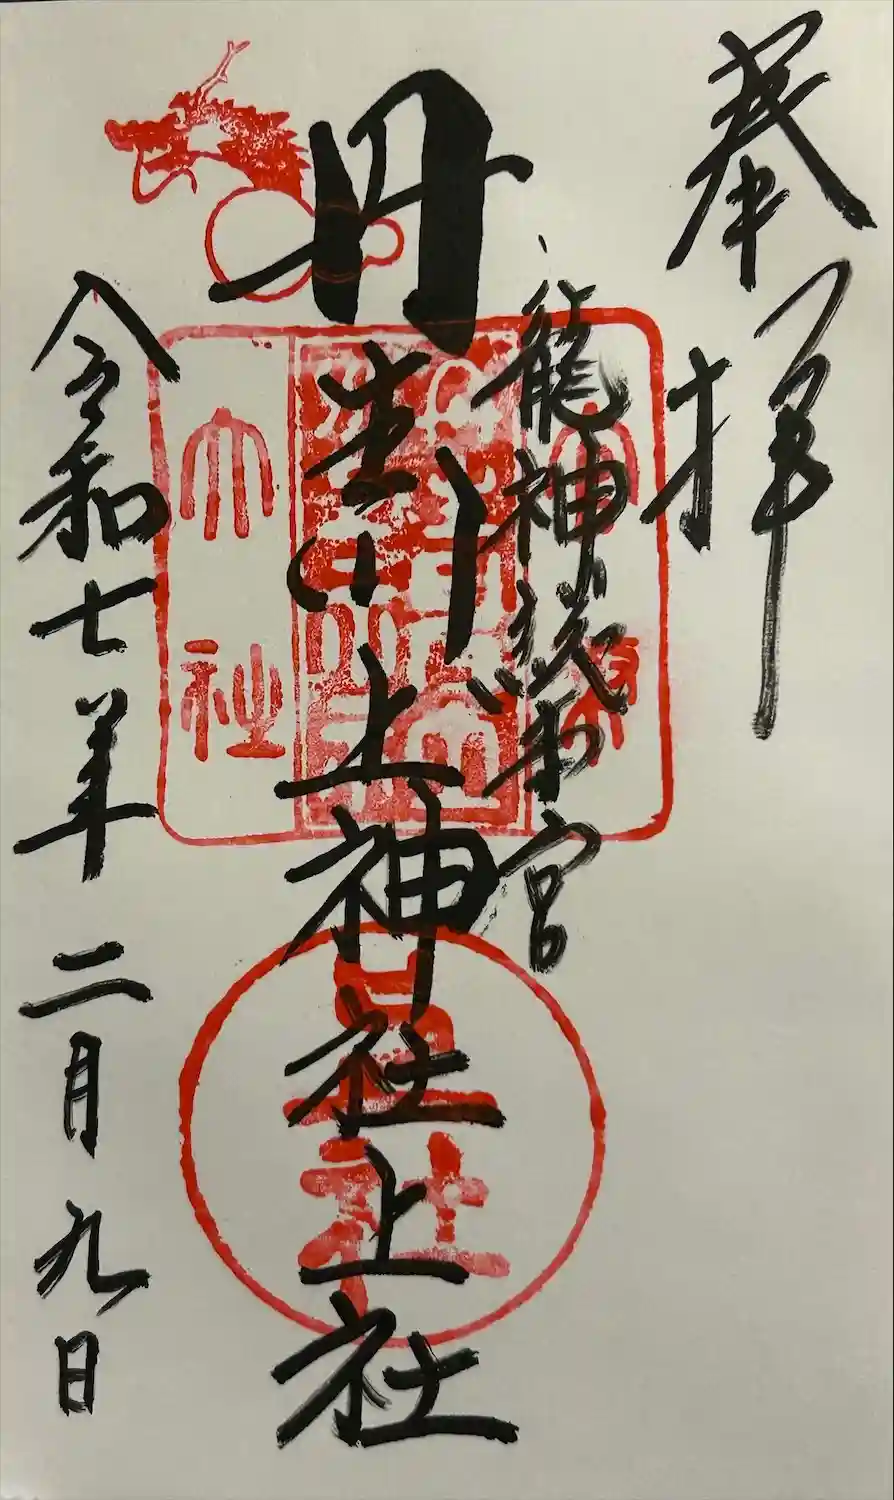 奉拝
龍神総本宮
丹生川上神社上社
大社
上社
令和七年二月九日